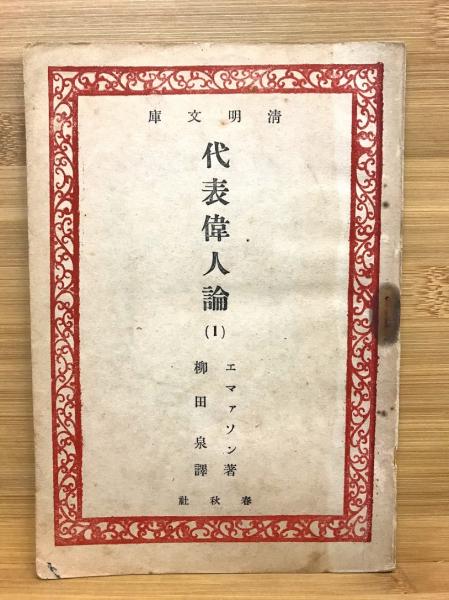 清明文庫
代表偉人論
(1)
エマァソン著
柳田泉譯
春秋社